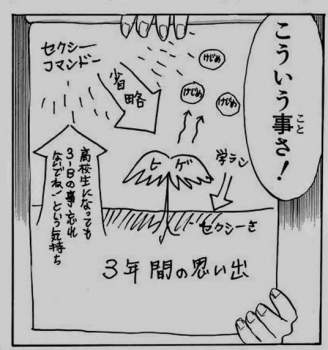 こういう事さ！
こと
セクシー
コマンドー
省略
けじめ
けじめ
けじめ
ヒゲ
学ラン
セクシーさ
高校生になっても
3-Bの事忘れ
ないでね、という気持ち
3年間の思い出